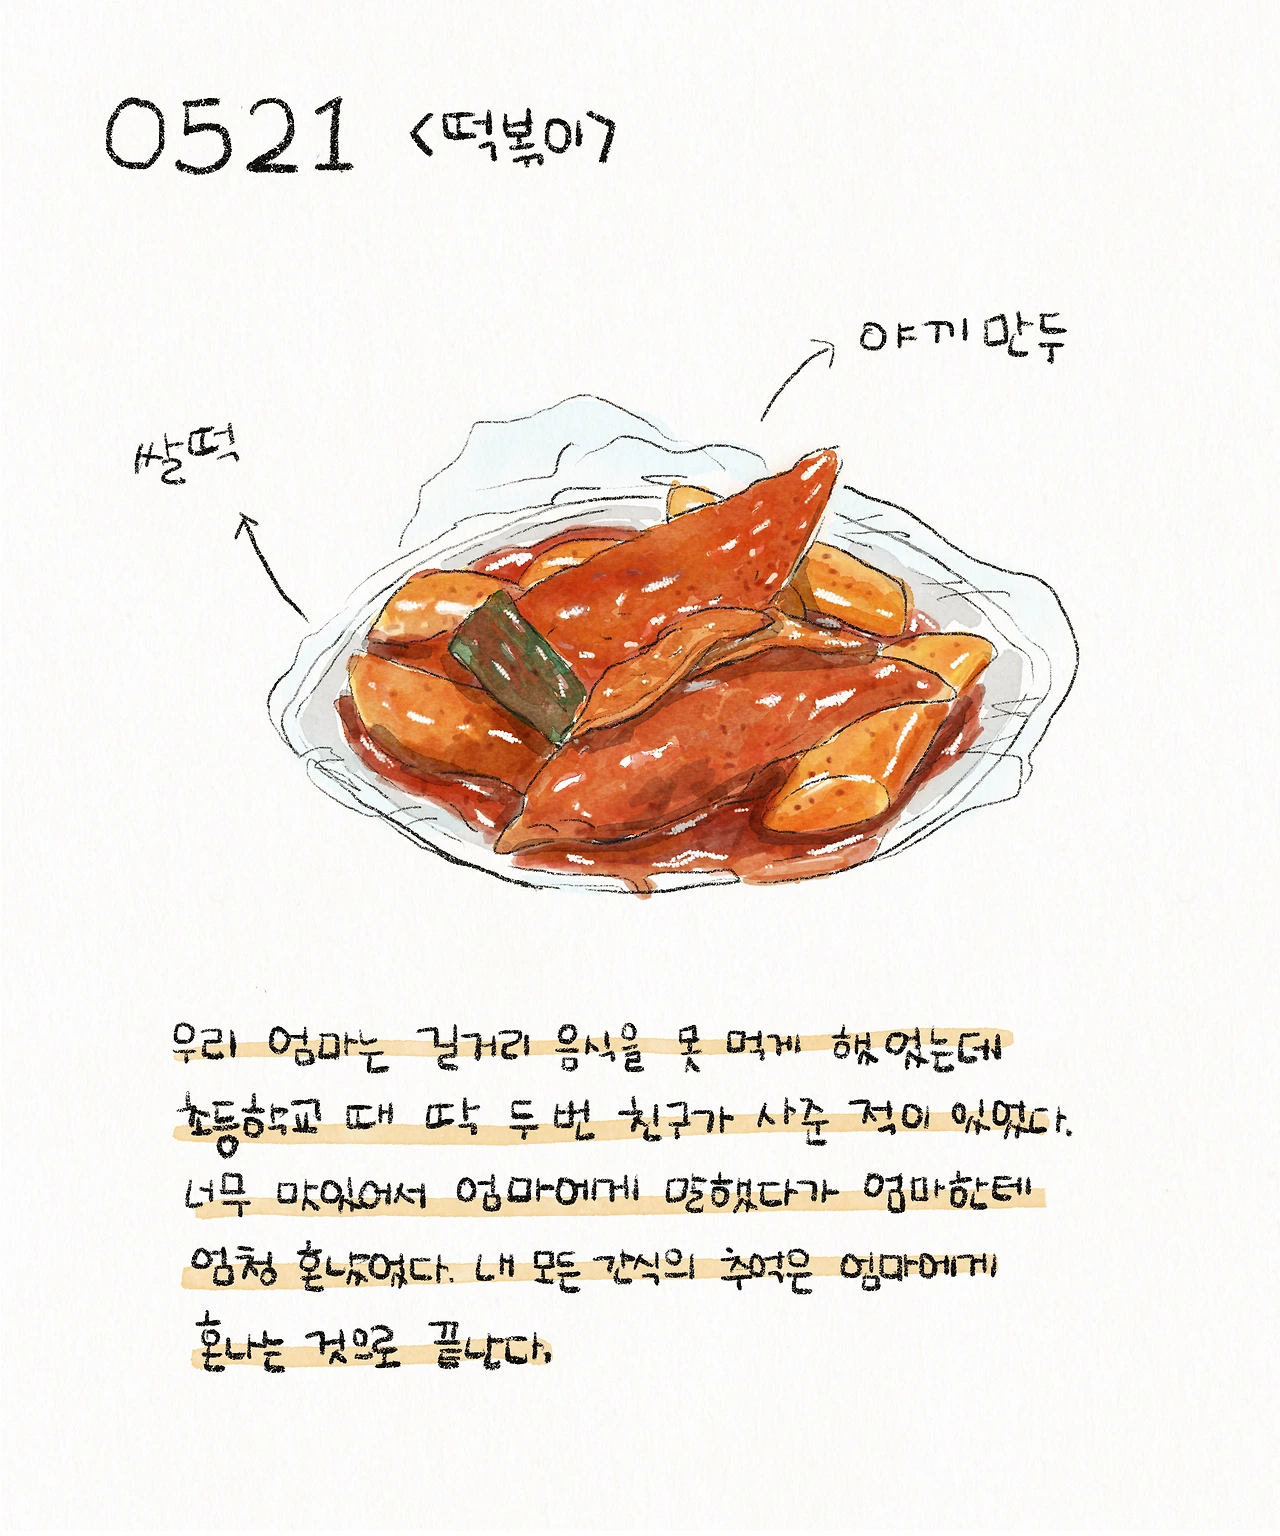 0521 <떡볶이>
야끼만두
쌀떡
우리 엄마는 길거리 음식을 못 먹게 했었는데
초등학교 때 딱 두번 친구가 사준 적이 있었다.
너무 맛있어서 엄마에게 말했다가 엄마한테
엄청 혼났었다. 내 모든 간식의 추억은 엄마에게
혼나는 것으로 끝난다,